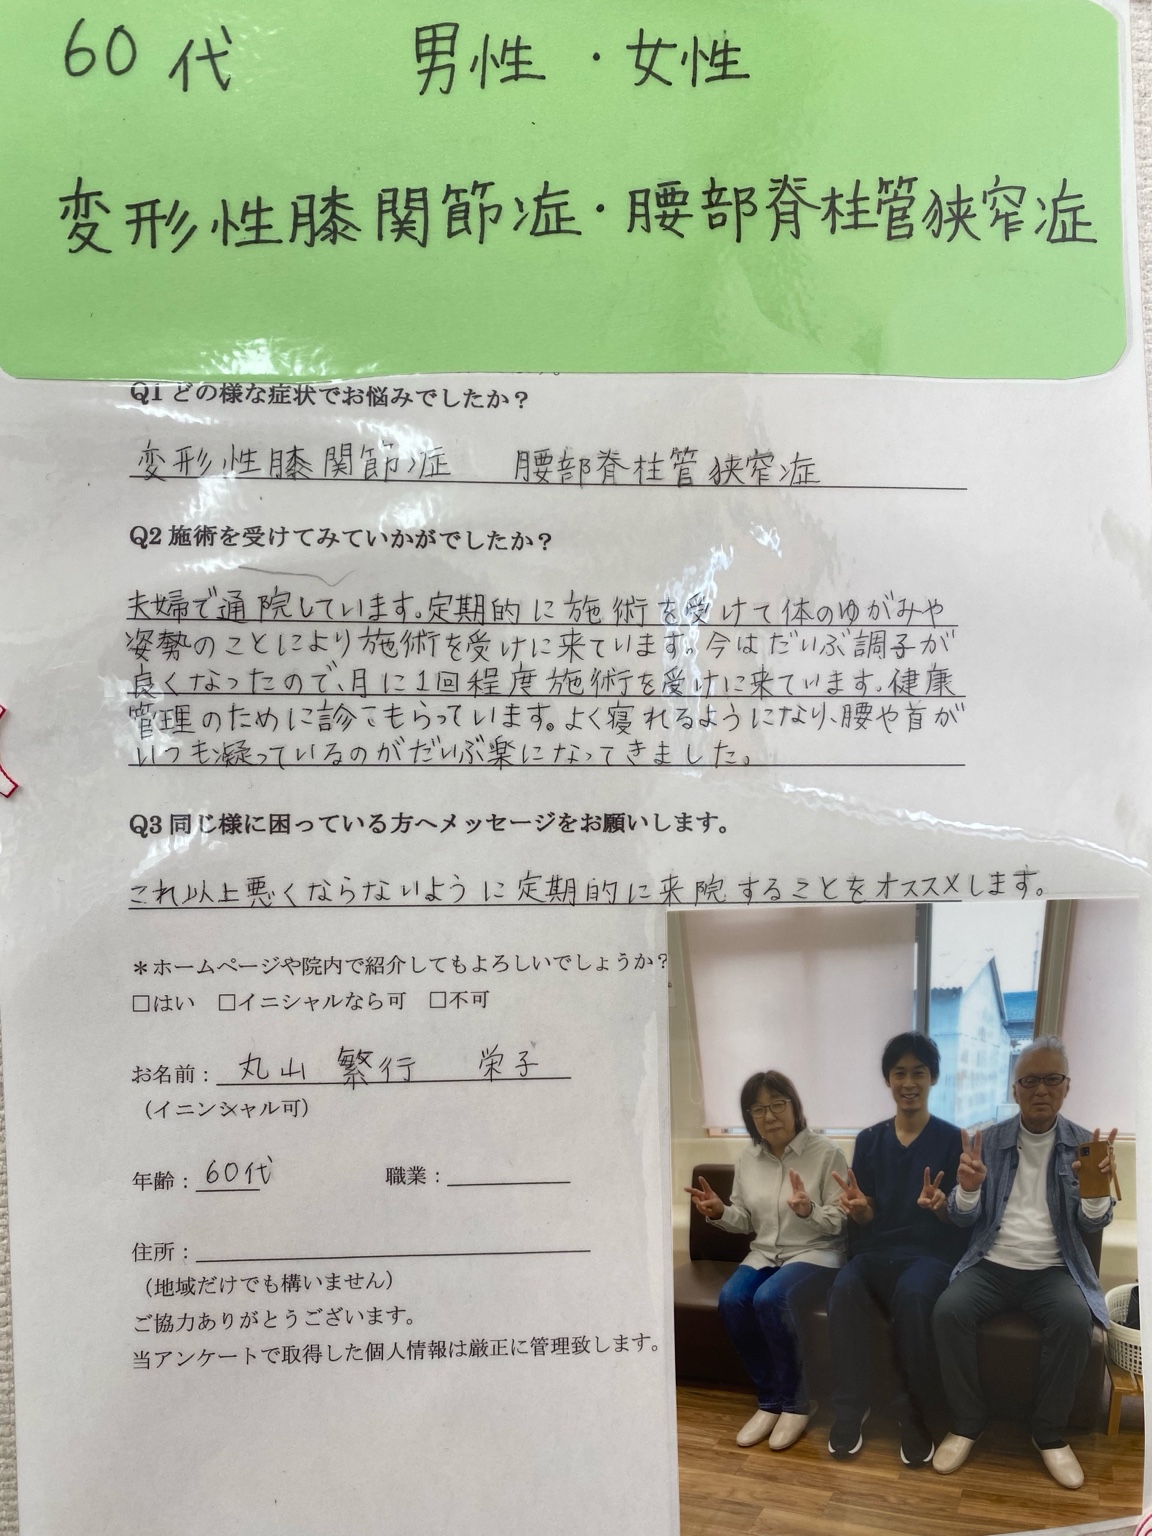 60代 男性・女性
変形性膝関節症・腰部脊柱管狭窄症
Q1 どの様な症状でお悩みでしたか？
変形性膝関節症 腰部脊柱管狭窄症
Q2 施術を受けてみていかがでしたか？
夫婦で通院しています。定期的に施術を受けて体のゆがみや
姿勢のことにより施術を受けに来ています。今はだいぶ調子が
良くなったので、月に1回程度施術を受けに来ています。健康
管理のために診てもらっています。よく寝れるようになり、腰や首が
いつも凝っているのがだいぶ楽になってきました。
Q3 同じ様に困っている方へメッセージをお願いします。
これ以上悪くならないように定期的に来院することをオススメします。
＊ホームページや院内で紹介してもよろしいでしょうか？
□はい □イニシャルなら可 □不可
お名前：丸山 繁行 栄子
（イニンシャル可）
年齢：60代 職業：
住所：
（地域だけでも構いません）
ご協力ありがとうございます。
当アンケートで取得した個人情報は厳正に管理致します。